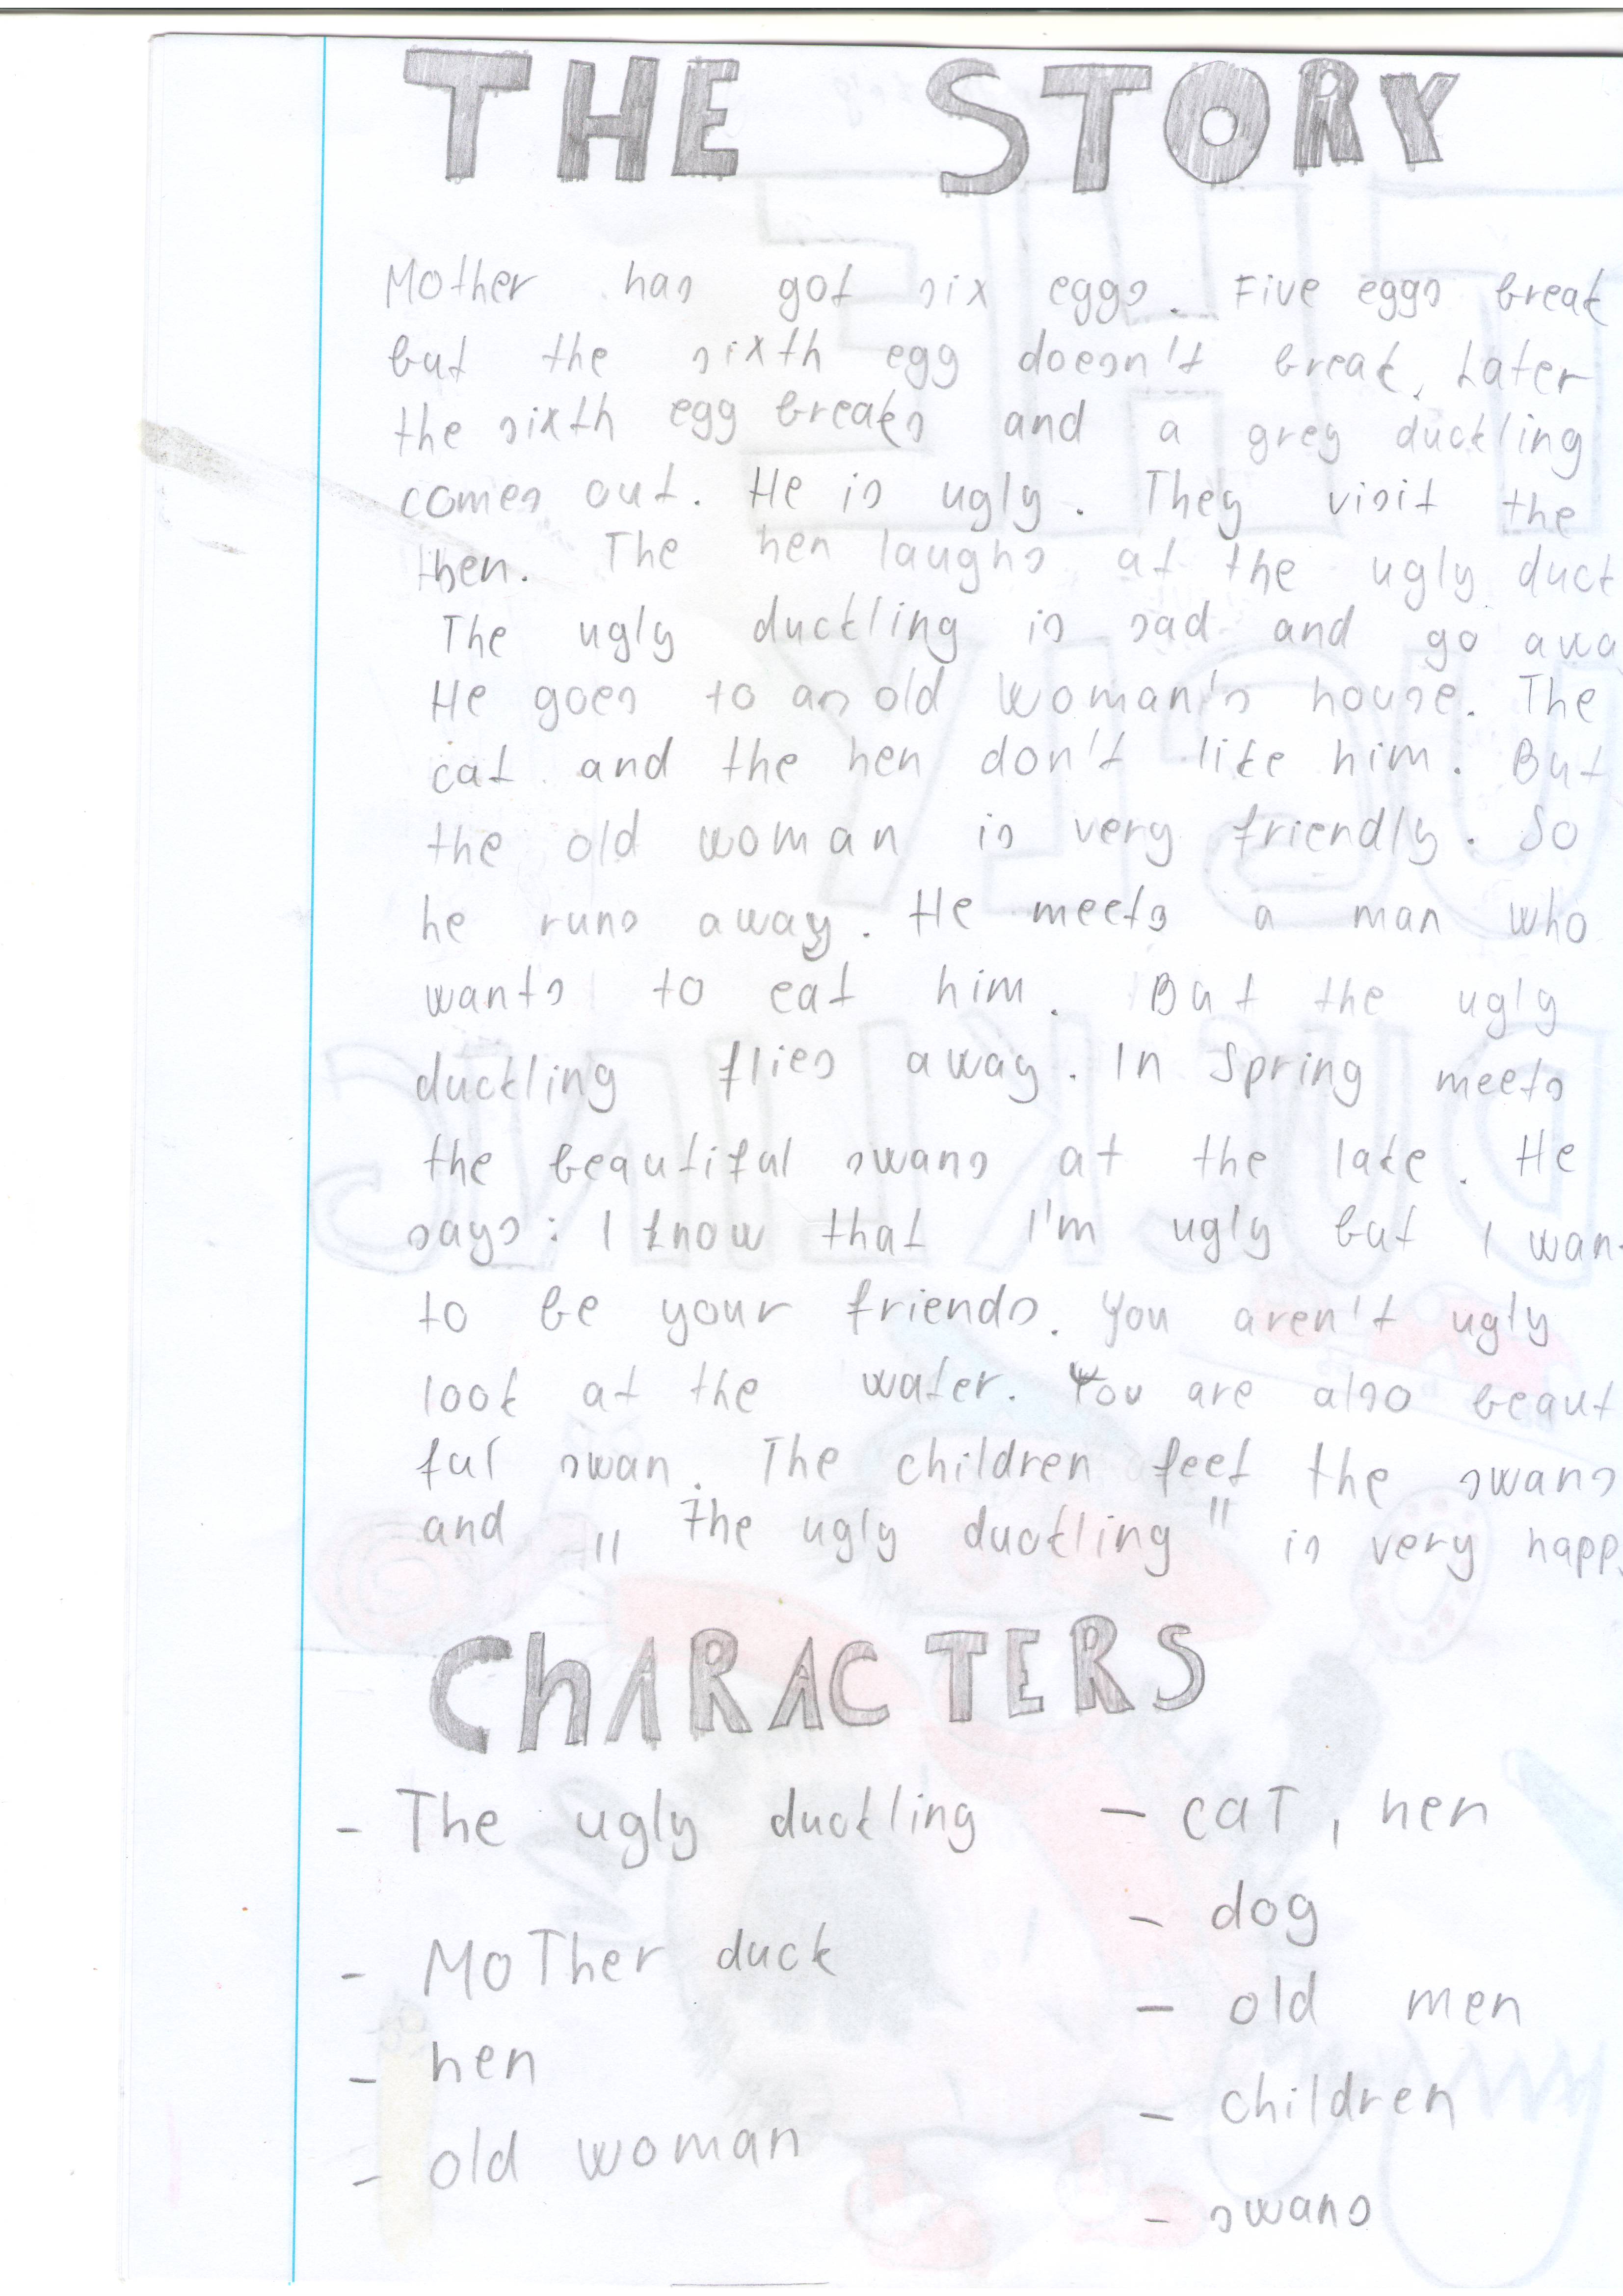 THE STORY
Mother has got six eggs. Five eggs break
but the sixth egg doesn't break. Later
the sixth egg breaks and a grey duckling
comes out. He is ugly. They visit the
then. The hen laughs at the ugly duck
The ugly duckling is sad and go awa
He goes to an old woman's house. The
cat and the hen don't like him. But
the old woman is very friendly. So
he runs away. He meets a man who
wants to eat him. But the ugly
duckling flies away. In Spring meets
the beautiful swans at the lake. He
says: I know that I'm ugly but I want
to be your friends. You aren't ugly
look at the water. You are also beaut
ful swan. The children feet the swans
and „ the ugly duckling " is very happ
ChARACTERS
- The ugly duckling - caT, hen
- dog
- MoTher duck
- old men
- hen
- children
- old woman
- swans